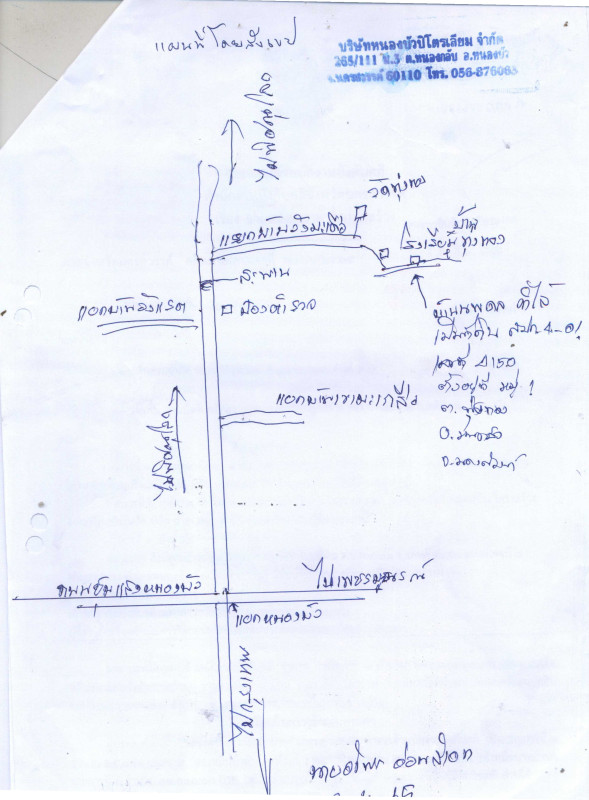 แผนที่โดยสังเขป
บริษัทหนองบัวปิโตรเลียม จำกัด
265/111 ม.3 ต.หนองกลับ อ.หนองบัว
จ.นครสวรรค์ 60110 โทร. 056-876063
ไปพิษณุโลก
วัดทุ่งทอง
แยกบ้านวังมะเดื่อ
บ้าน
โรงเรียน ทุ่งทอง
สะพาน
แยกบ้าน
ป้อมตำรวจ
ที่ดิน ส.ป.ก. 4-01
เลขที่
ตั้งอยู่ที่ หมู่ 1
ต. ทุ่งทอง
อ. หนองบัว
จ. นครสวรรค์
แยกบ้านเขามะเกลือ
ไปพิษณุโลก
ถนนชุมแสงหนองบัว
ไปเพชรบูรณ์
แยกหนองบัว
ไปกรุงเทพ